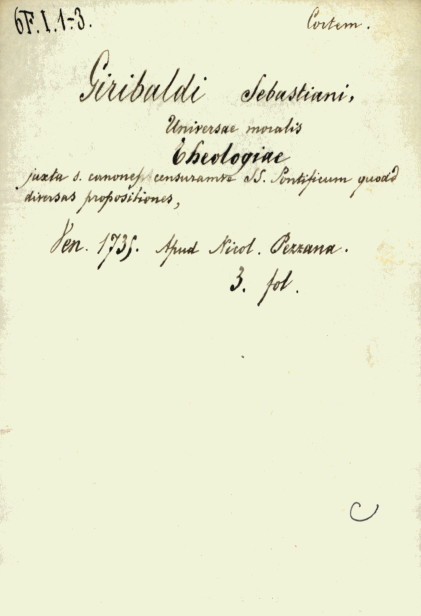 6F.I.1-3. Cortem.
Giribaldi Sebastiani,
Universae moralis
Theologiae
juxta s. canones, censuramve SS. Pontificum quoad
diversas propositiones,
Ven. 1735. Apud Nicol. Pezzana.
3. fol.
C